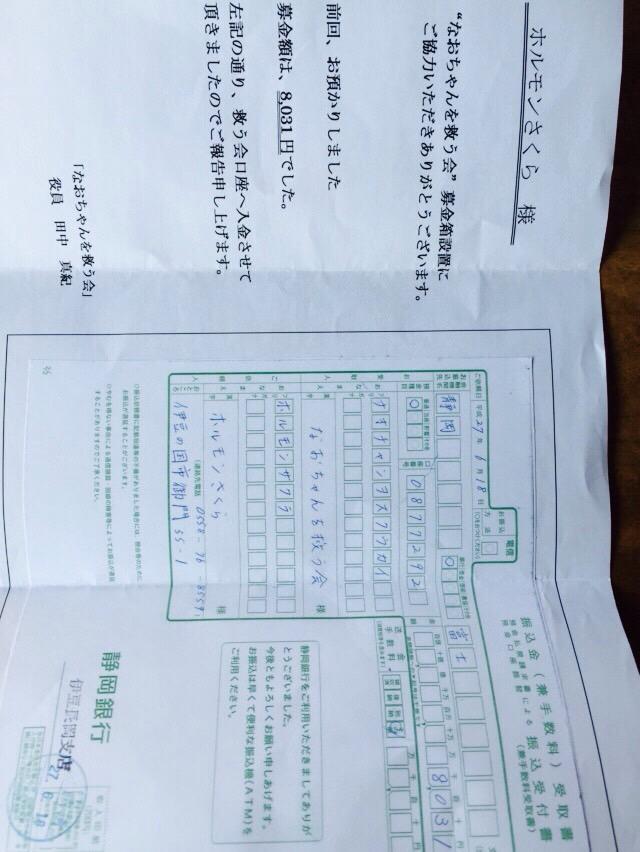 ホルモンさくら 様
“なおちゃんを救う会”募金箱設置に
ご協力いただきありがとうございます。
前回、お預かりしました
募金額は、8,031円でした。
左記の通り、救う会口座へ入金させて
頂きましたのでご報告申し上げます。
「なおちゃんを救う会」
役員 田中 真紀
振込金(兼手数料)受取書
振込受付書
(兼手数料受取書)
ご依頼日 平成27年6月18日
お振込方法
電信
静岡
富士
口座番号
0877292
8031
ナオチャンヲスクウカイ
なおちゃんを救う会 様
送金手数料
ホルモンサクラ
ホルモンさくら 様
伊豆の国市御門55-1
静岡銀行をご利用いただきましてありが
とうございました。
今後ともよろしくお願い申しあげます。
お振込は早くて便利な振込機(ATM)を
ご利用ください。
静岡銀行
伊豆長岡支店